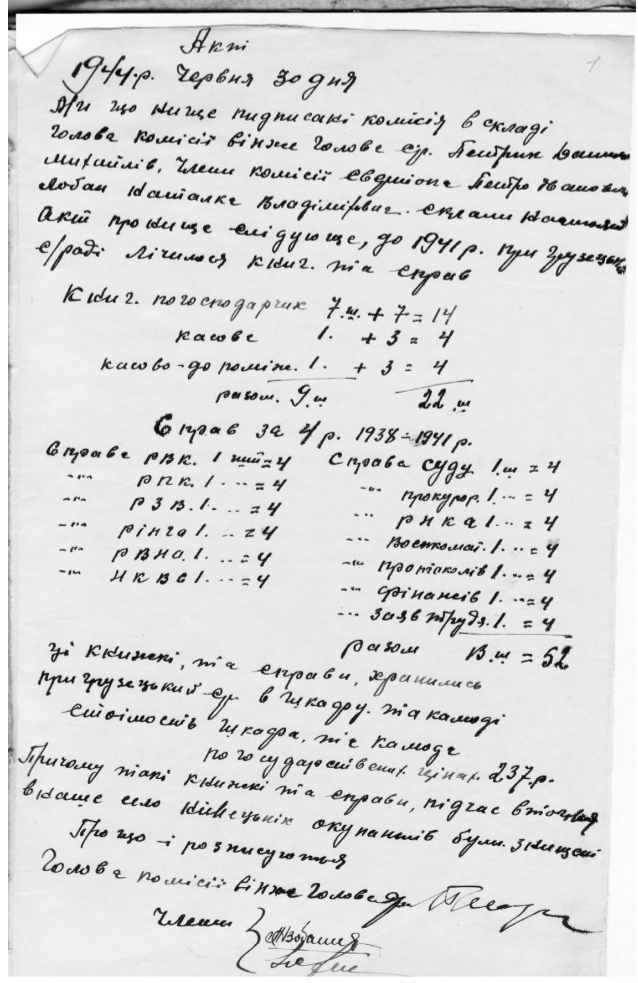 Акт
1
1944.р. Червня 30 дня
Ми що нище пидписані комісія в складі
Голова комісії він же Голова с/р. Петрик
Михайлів, Члени комісії Євдшіопа Петро
Лобач Наталка Владімірівна. склали
Акт про нище слідующе, до 1941 р. при Грузецькій
с/раді лічилося книг. та справ
Книг. погосподарчик 7.ш. + 7 = 14
касове 1. + 3 = 4
касово-до поміж. 1. + 3 = 4
разом. 9.ш 22.ш
Справ за 4 р. 1938-1941 р.
Справа РВК. 1 = 4 Справа суду 1.ш = 4
-"- РПК. 1 ... = 4 -"- прокурор. 1 ... = 4
-"- РЗВ. 1. ... = 4 -"- РНКА 1 ... = 4
-"- рінга 1. .. = 4 -"- Воєнкомат. 1. ... = 4
-"- РВНО. 1 ... = 4 -"- протаколів 1 ... = 4
-"- НКВС 1. ... = 4 -"- фінансів 1. ... = 4
-"- заяв труд. 1. = 4
разом 13.ш = 52
ці книжкі, та справи, хранились
при грузецький с/р в шкафу. та камоді
стоімость шкафа, та камода
по государствених цінах 237.р.
Причому такі книжкі та справи, підчас
в наше село німецьких окупантів були знищені
Про що і розписуються
Голова комісії він же Голова с/р
Члени